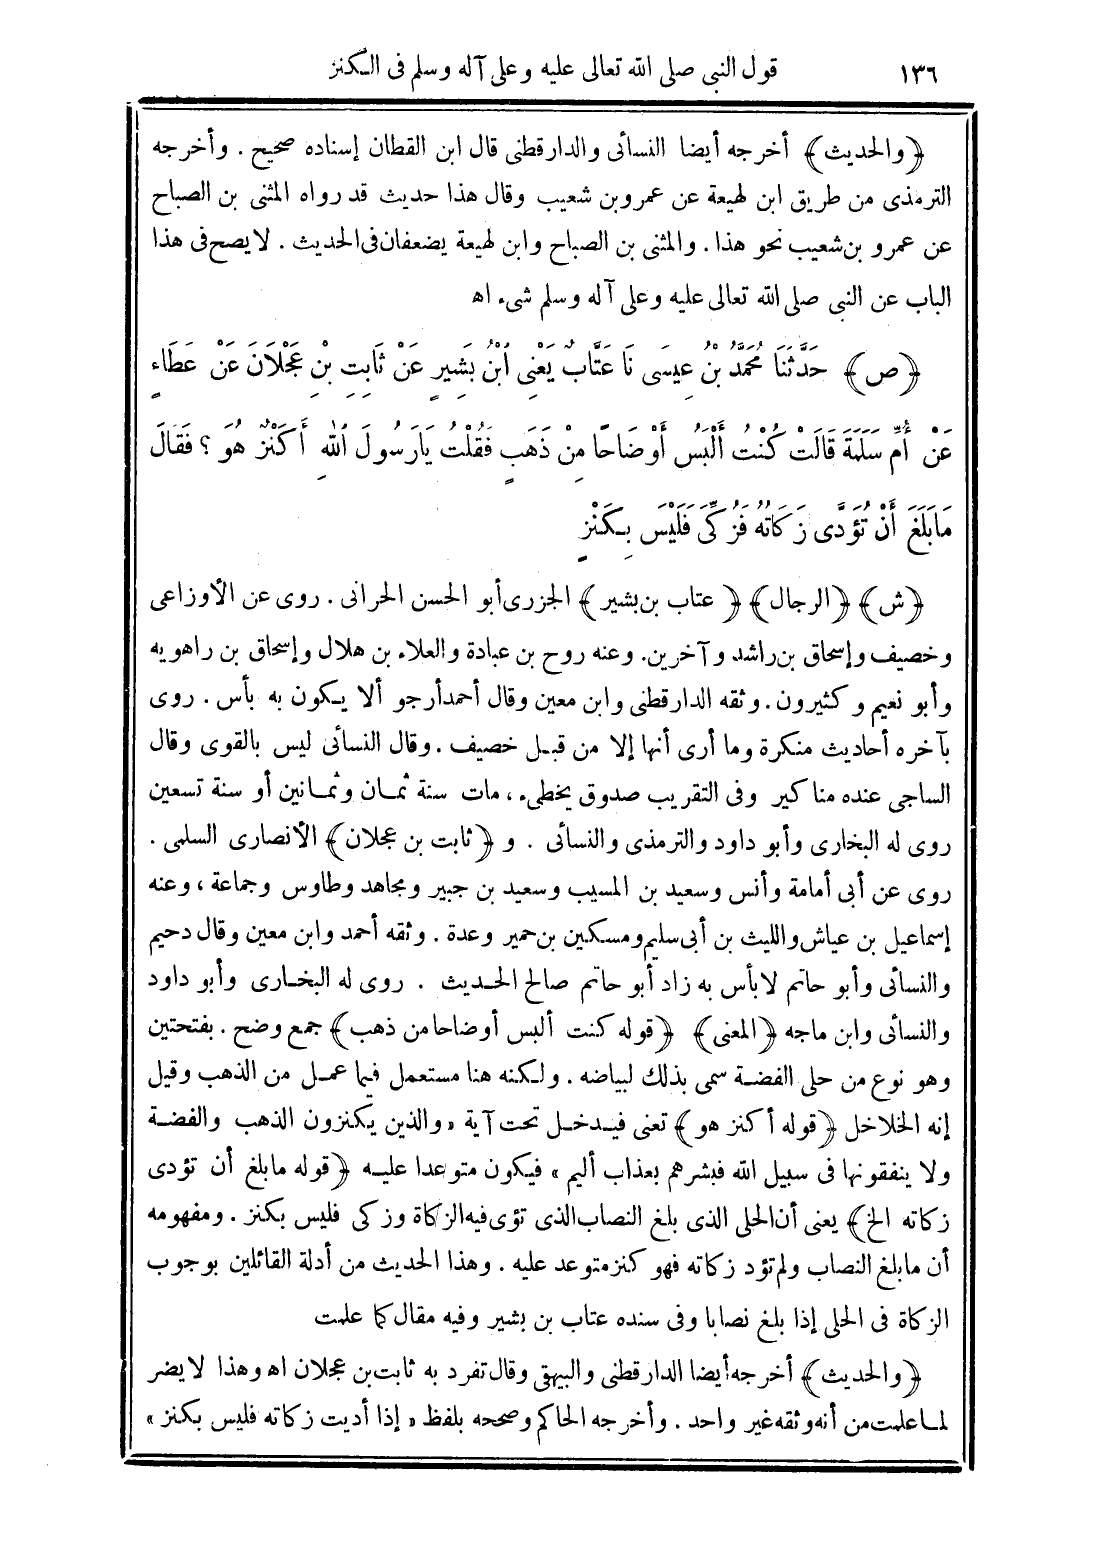 ١٣٦ قول النبي صلى الله تعالى عليه وعلى آله وسلم فى الكنز
﴿والحديث﴾ أخرجه أيضا النسائى والدارقطنى قال ابن القطان إسناده صحيح . وأخرجه
الترمذى من طريق ابن لهيعة عن عمرو بن شعيب وقال هذا حديث قد رواه المثنى بن الصباح
عن عمرو بن شعيب نحو هذا . والمثنى بن الصباح وابن لهيعة يضعفان فى الحديث . لا يصح فى هذا
الباب عن النبى صلى الله تعالى عليه وعلى آله وسلم شىء اه
﴿ص﴾ حَدَّثَنَا مُحَمَّدُ بْنُ عِيسَى نَا عَتَّابٌ يَعْنِى ابْنُ بَشِيرٍ عَنْ ثَابِتِ بْنِ عَجْلَانَ عَنْ عَطَاءٍ
عَنْ أُمِّ سَلَمَةَ قَالَتْ كُنْتُ أَلْبَسُ أَوْضَاحًا مِنْ ذَهَبٍ فَقُلْتُ يَارَسُولَ اللهِ أَكَنْزٌ هُوَ ؟ فَقَالَ
مَابَلَغَ أَنْ تُؤَدَّى زَكَاتُهُ فَزُكِّىَ فَلَيْسَ بِكَنْزٍ
﴿ش﴾ ﴿الرجال﴾ ﴿عتاب بن بشير﴾ الجزرى أبو الحسن الحرانى . روى عن الأوزاعى
وخصيف وإسحاق بن راشد وآخرين. وعنه روح بن عبادة والعلاء بن هلال وإسحاق بن راهويه
وأبو نعيم وكثيرون . وثقه الدارقطنى وابن معين وقال أحمد أرجو ألا يكون به بأس . روى
بآخره أحاديث منكرة وما أرى أنها إلا من قبل خصيف . وقال النسائى ليس بالقوى وقال
الساجى عنده مناكير وفى التقريب صدوق يخطىء ، مات سنة ثمان وثمانين أو سنة تسعين
روى له البخارى وأبو داود والترمذى والنسائى . و ﴿ثابت بن عجلان﴾ الأنصارى السلمى .
روى عن أبى أمامة وأنس وسعيد بن المسيب وسعيد بن جبير ومجاهد وطاوس وجماعة ، وعنه
إسماعيل بن عياش والليث بن أبى سليم ومسكين بن حمير وعدة . وثقه أحمد وابن معين وقال دحيم
والنسائى وأبو حاتم لا بأس به زاد أبو حاتم صالح الحديث . روى له البخارى وأبو داود
والنسائى وابن ماجه ﴿المعنى﴾ ﴿قوله كنت ألبس أوضاحا من ذهب﴾ جمع وضح . بفتحتين
وهو نوع من حلى الفضة سمى بذلك لبياضه . ولكنه هنا مستعمل فيما عمل من الذهب وقيل
إنه الخلاخل ﴿قوله أكنز هو﴾ تعنى فيدخل تحت آية «والذين يكنزون الذهب والفضة
ولا ينفقونها فى سبيل الله فبشرهم بعذاب أليم» فيكون متوعدا عليه ﴿قوله مابلغ أن تؤدى
زكاته الخ﴾ يعنى أن الحلى الذى بلغ النصاب الذى تؤى فيه الزكاة وزكى فليس بكنز . ومفهومه
أن مابلغ النصاب ولم تؤد زكاته فهو كنز متوعد عليه . وهذا الحديث من أدلة القائلين بوجوب
الزكاة فى الحلى إذا بلغ نصابا وفى سنده عتاب بن بشير وفيه مقال كما علمت
﴿والحديث﴾ أخرجه أيضا الدارقطنى والبيهقى وقال تفرد به ثابت بن عجلان اه وهذا لايضر
لما علمت من أنه وثقه غير واحد . وأخرجه الحاكم وصححه بلفظ «إذا أديت زكاته فليس بكنز»